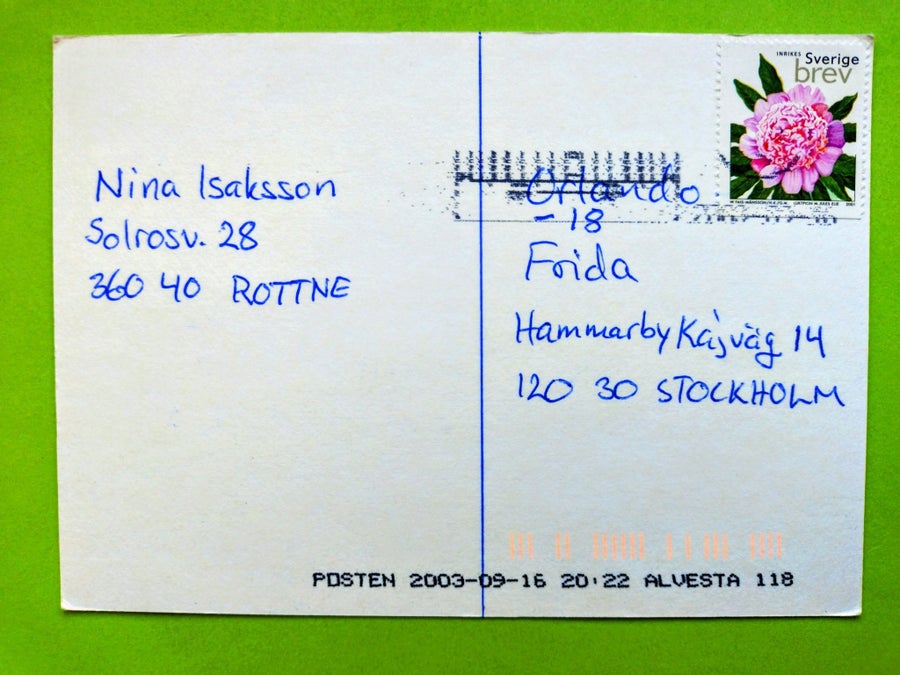 Nina Isaksson
Solrosv. 28
360 40 ROTTNE
INRIKES Sverige
brev
Orlando
-18
Frida
Hammarby Kajväg 14
120 30 STOCKHOLM
POSTEN 2003-09-16 20:22 ALVESTA 118